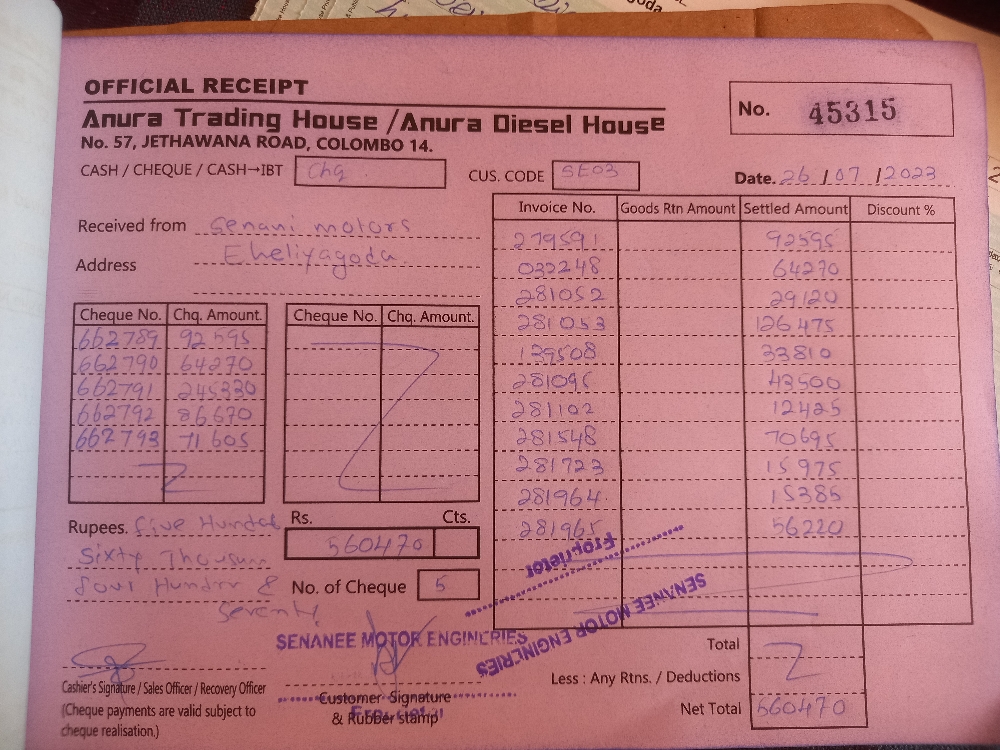 OFFICIAL RECEIPT
Anura Trading House /Anura Diesel House
No. 57, JETHAWANA ROAD, COLOMBO 14.
No. 45315
CASH / CHEQUE / CASH→IBT Chq
CUS. CODE SE03
Date. 26 / 07 / 2023
Received from Senani motors
Address Eheliyagoda
Cheque No. Chq. Amount.
662789 92595
662790 64270
662791 245330
662792 86670
662793 71605
Cheque No. Chq. Amount.
Invoice No. Goods Rtn Amount Settled Amount Discount %
279591 92595
032248 64270
281052 29120
281053 126475
139508 33810
281095 43500
281102 12425
281548 70695
281723 15975
281964 15385
281965 56220
Rupees. five Hundred
Sixty Thousand
four Hundred &
Seventy
Rs. Cts.
560470
No. of Cheque 5
SENANEE MOTOR ENGINERIES
Proprietor
SENANEE MOTOR ENGINERIES
Proprietor
Cashier's Signature / Sales Officer / Recovery Officer
(Cheque payments are valid subject to
cheque realisation.)
Customer Signature
& Rubber stamp
Total
Less : Any Rtns. / Deductions
Net Total 560470